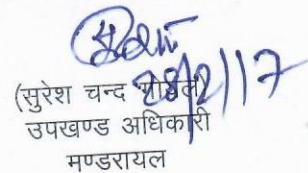 28/2/17
(सुरेश चन्द
उपखण्ड अधिकारी
मण्डरायल